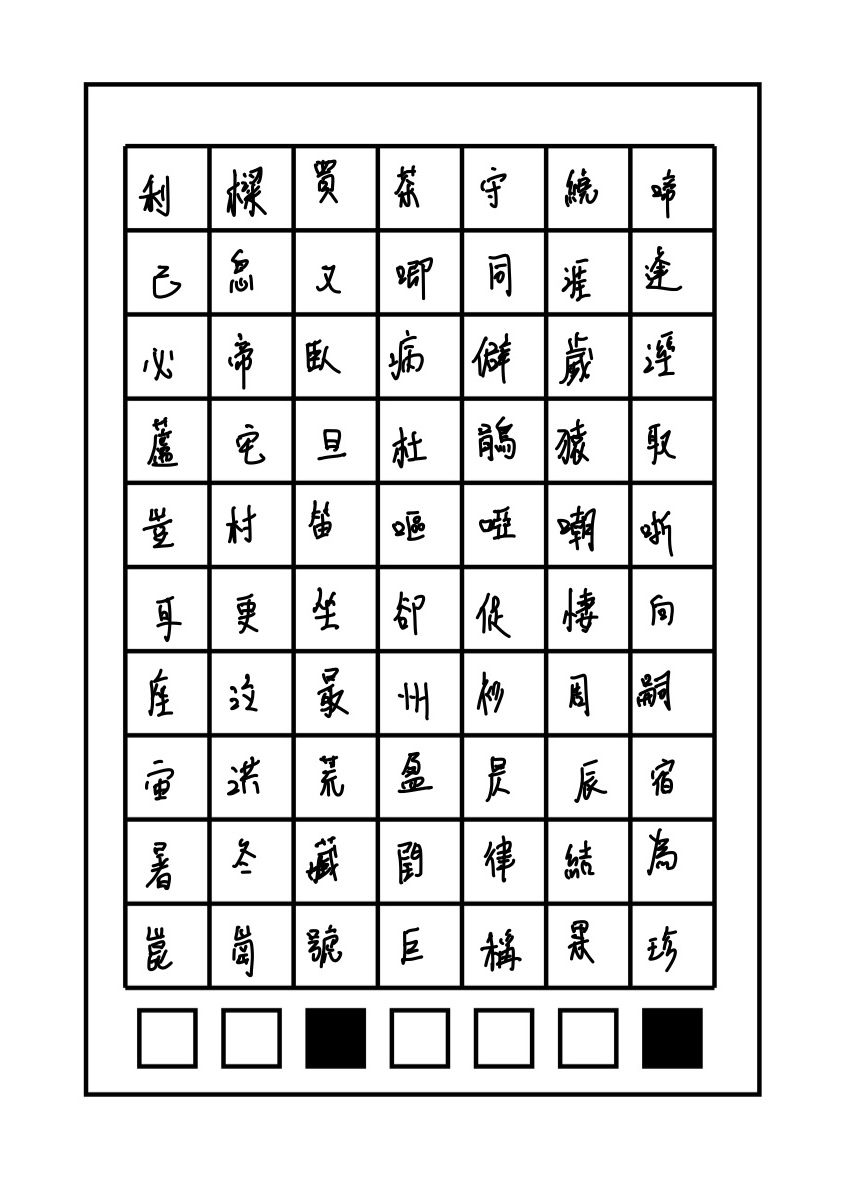 利樑買茶守繞啼
己忽又唧同涯逢
必帝臥病僻歲逕
蘆宅旦杜鵑猿取
豈村笛嘔啞嘲哳
耳更坐卻促悽向
座泣最州衫周嗣
宙洪荒盈昃辰宿
暑冬藏閏律結為
崑崗號巨稱眾珍